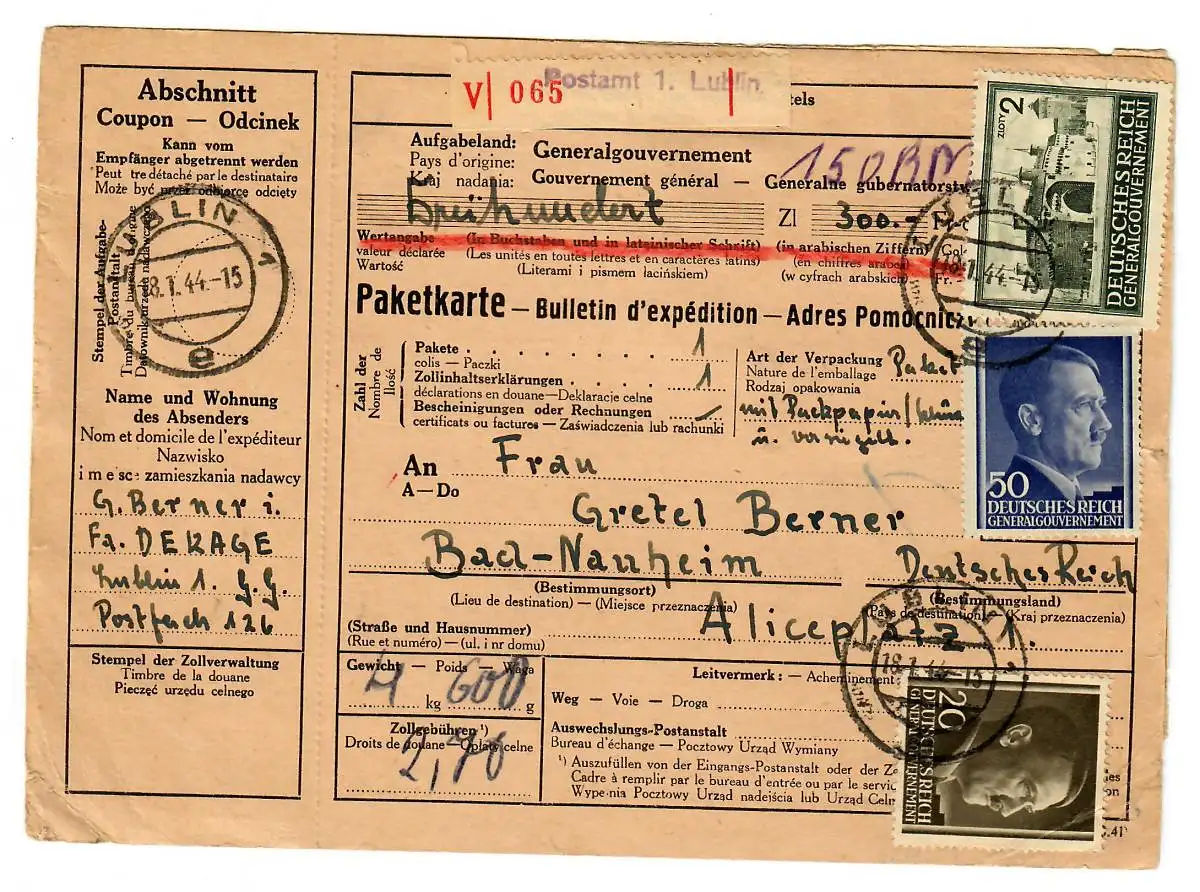 Abschnitt
Coupon — Odcinek
Kann vom
Empfänger abgetrennt werden
Peut tre détaché par le destinataire
Może być przez odbiorcę odcięty
Stempel der Aufgabe-
Postanstalt
Timbre du bureau d'origine
Datownik urzędu nadawczego
LUBLIN 1
18.1.44.-15
e
Name und Wohnung
des Absenders
Nom et domicile de l'expéditeur
Nazwisko
i m e sce zamieszkania nadawcy
G. Berner i.
Fa. DEKAGE
Lublin 1. G.G.
Postfach 126
Stempel der Zollverwaltung
Timbre de la douane
Pieczęć urzędu celnego
V 065
Postamt 1. Lublin
tels
Aufgabeland:
Pays d'origine:
Kraj nadania:
Generalgouvernement
Gouvernement général — Generalne gubernatorstw
150 RM
Dreihundert
Zl 300.-
Wertangabe
valeur déclarée
Wartość
(In Buchstaben und in lateinischer Schrift)
(Les unités en toutes lettres et en caractères latins)
(Literami i pismem łacińskiem)
(in arabischen Ziffern)
(en chiffres arabes)
(w cyfrach arabskich)
Paketkarte — Bulletin d'expédition — Adres Pomocnicz
Zahl der
Nombre de
Ilość
Pakete 1
colis — Paczki
Zollinhaltserklärungen 1
déclarations en douane—Deklaracje celne
Bescheinigungen oder Rechnungen
certificats ou factures — Zaświadczenia lub rachunki
Art der Verpackung
Nature de l'emballage
Rodzaj opakowania
Paket
mit Packpapier/
u. versiegelt.
An Frau
A—Do
Gretel Berner
Bad-Nauheim
Deutsches Reich
(Bestimmungsort)
(Lieu de destination) — (Miejsce przeznaczenia)
(Bestimmungsland)
(Pays de destination) — (Kraj przeznaczenia)
Aliceplatz 1.
(Straße und Hausnummer)
(Rue et numéro) — (ul. i nr domu)
Gewicht — Poids — Waga
4 kg 600 g
Zollgebühren ¹)
Droits de douane—Opłaty celne
2,70
Leitvermerk: — Acheminement:
Weg — Voie — Droga
Auswechslungs-Postanstalt
Bureau d'échange — Pocztowy Urząd Wymiany
¹) Auszufüllen von der Eingangs-Postanstalt oder der
Cadre à remplir par le bureau d'entrée ou par le servic
Wypełnia Pocztowy Urząd nadejścia lub Urząd Celn
ZLOTY 2
DEUTSCHES REICH
GENERALGOUVERNEMENT
LUBLIN
18.1.44.-15
e
50
DEUTSCHES REICH
GENERALGOUVERNEMENT
LUBLIN
18.1.44.-15
20
DEUTSCHES REICH
GENERALGOUVERNEMENT